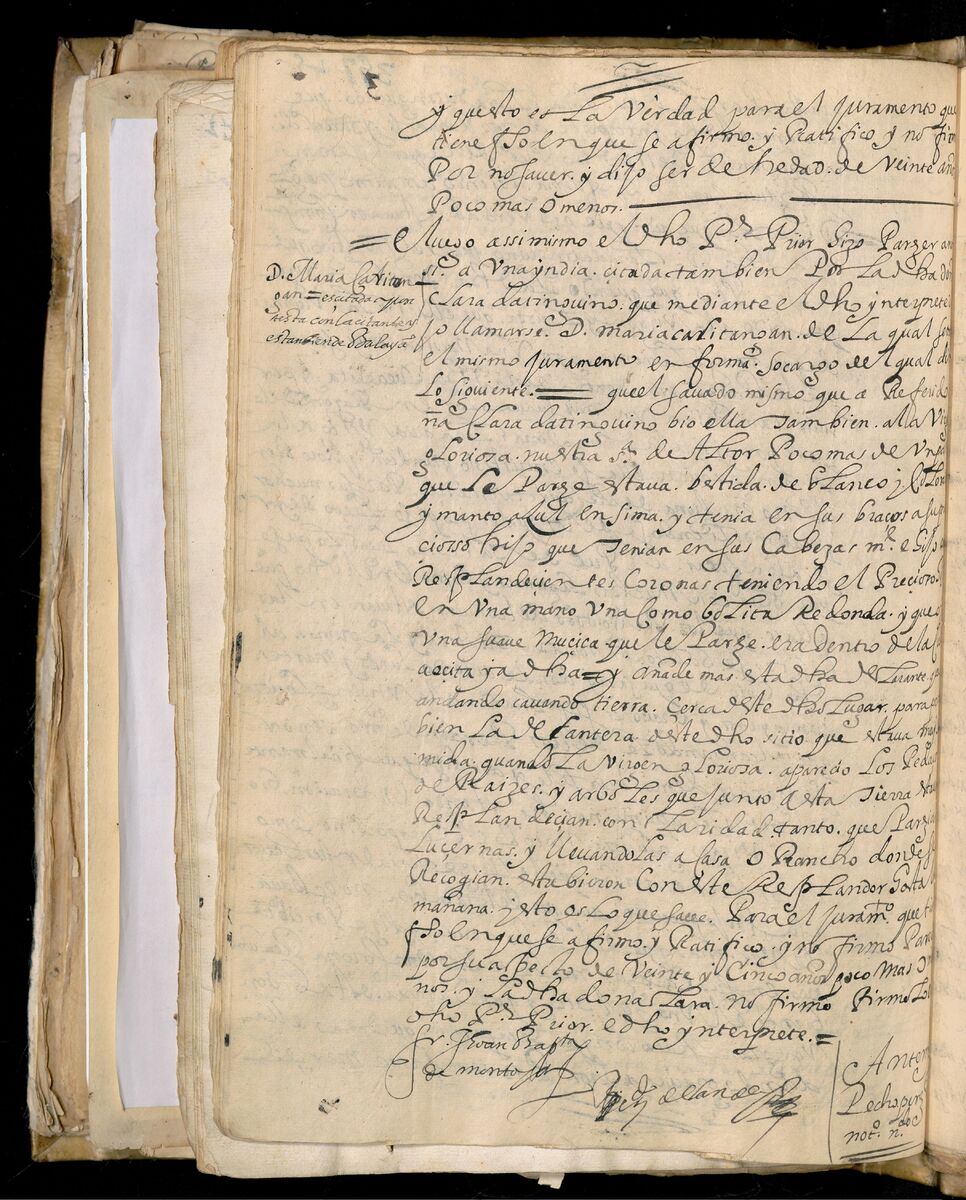 y questo es La Verdad para el juramento que
tiene fho en que se afirmo. y Ratifico y no fir
Por no saver. y dijo ser de hedad. de Veinte año
Poco mas o menos.
= e luego assimismo el dho Pe. Prior hizo Parezer an
si. a Una yndia. citada tambien Por La dha do
Clara datinguino. que mediante el dho ynterprete
jo llamarse. D. maria catitangan. de La qual
el mismo juramento en forma. so cargo del qual di
Lo siguiente. = que el savado mismo que a Referido
ña Clara datinguino bio ella Tambien. a la Vir
gloriosa. nuestra sra. de Altor Poco mas de Un
que le Pareze estava. bestida. de blanco y
y manto asul ensima. y tenia en sus braços a su
ciosso hijo que Tenian en sus Cabezas me. e hijo
Resplandecientes Coronas teniendo el Precioso
en Una mano Una Como bolita Redonda. y que
Una suave Mucica. que le Pareze. era dentro de la
uecita ya dha = y añade mas esta dha de
andando cavando tierra. Cerca deste dho Lugar. para
bien La delantera deste dho sitio que estava
mida. quando La Virgen gloriosa. aparecio Los Peda
de Raizes. y arboles que junto a esta Tierra
Resplandecian. con Claridad. tanto. que Parezia
Luçernas. y llevandolas a Casa O Rancho donde
Recogian. estubieron Con este Resplandor hasta
mañana. y esto es Lo que save. Para el juramto. que
fho en que se afirmo. y Ratifico. y no firmo Pare
por su aspecto de Veinte y Cinco años poco mas o
nos. y La dha dona Clara. no firmo firmolo
dho Pe. Prior. e dho ynterprete. =
D. Maria Catitan
gan = es citada y con
testa con la citante y
fr. Juan Bapta
de montoya
Ante
Pedro
noto. n.